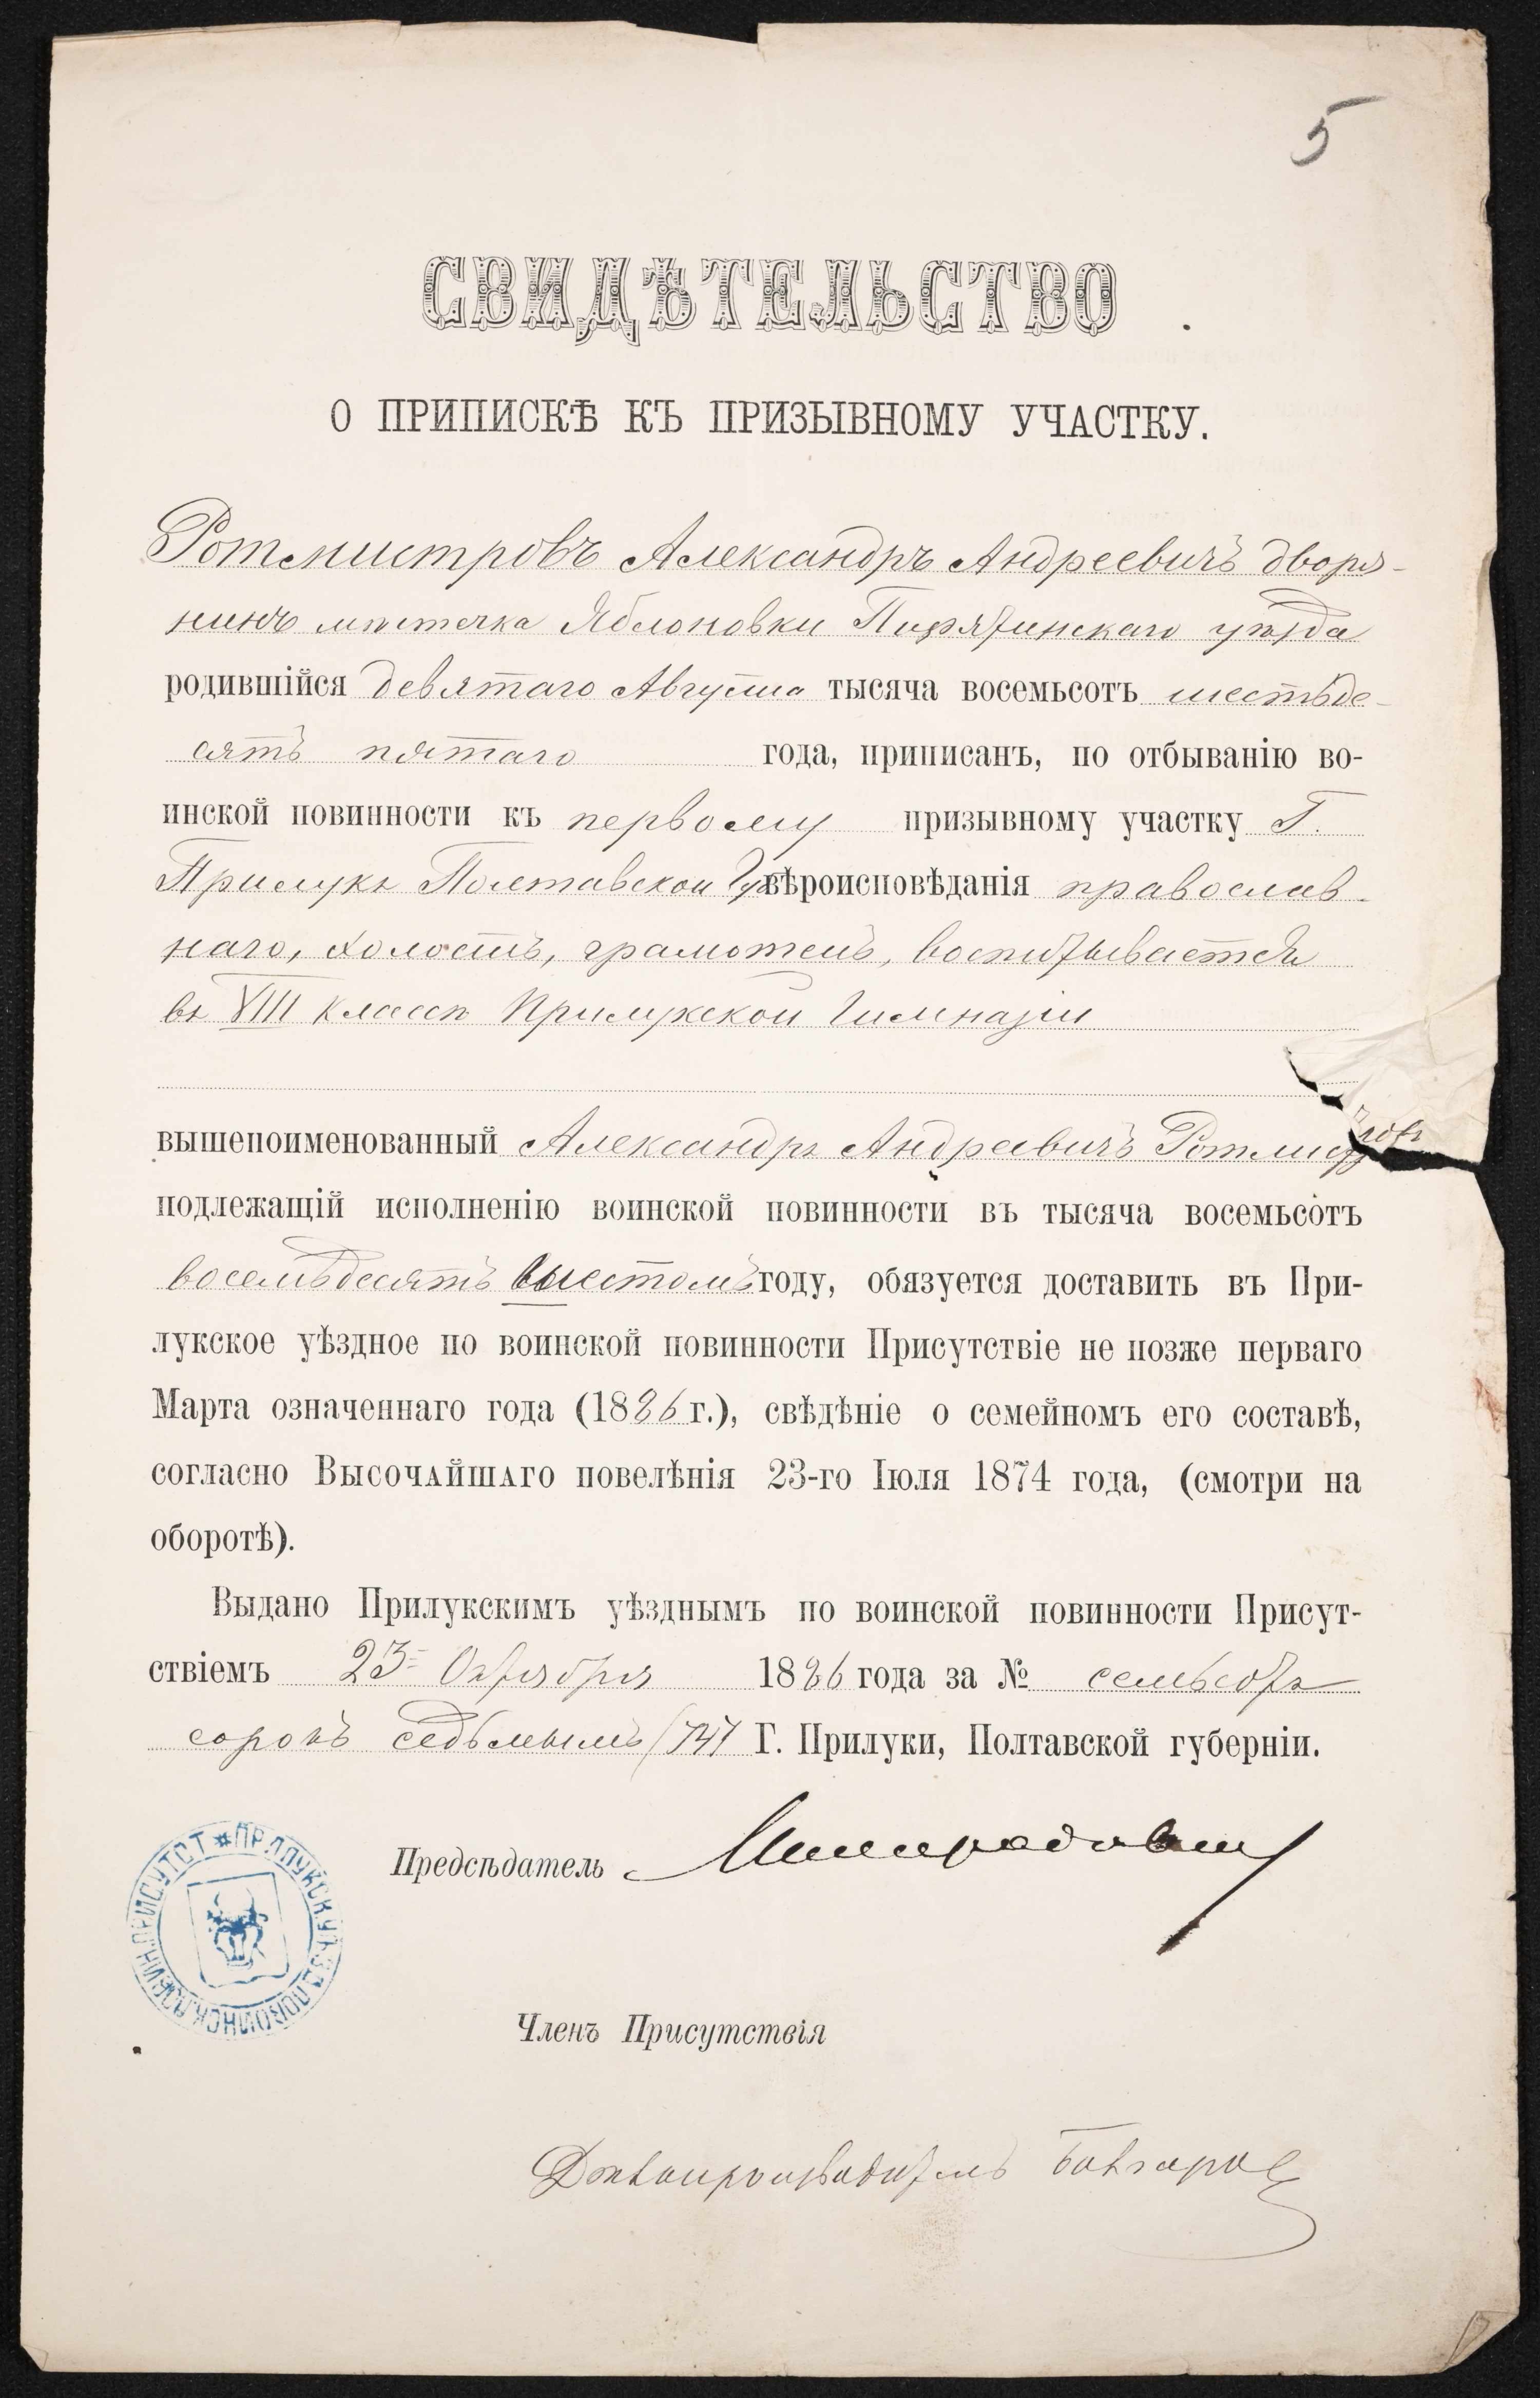 5
СВИДѢТЕЛЬСТВО
О ПРИПИСКѢ КЪ ПРИЗЫВНОМУ УЧАСТКУ.
Ротмистровъ Александръ Андреевичъ дворя-
нинъ мѣстечка Яблоновки Пирятинскаго уѣзда
родившійся девятаго Августа тысяча восемьсотъ шестьде-
сятъ пятаго года, приписанъ, по отбыванію во-
инской повинности къ первому призывному участку Г.
Прилукъ Полтавской Губ вѣроисповѣданія православ-
наго, холостъ, грамотенъ, воспитывается
въ VIII классѣ Прилукской Гимназіи
вышепоименованный Александръ Андреевичъ Ротмистровъ
подлежащій исполненію воинской повинности въ тысяча восемьсотъ
восемьдесятъ шестомъ году, обязуется доставить въ При-
лукское уѣздное по воинской повинности Присутствіе не позже перваго
Марта означеннаго года (1886 г.), свѣдѣніе о семейномъ его составѣ,
согласно Высочайшаго повелѣнія 23-го Іюля 1874 года, (смотри на
оборотѣ).
Выдано Прилукскимъ уѣзднымъ по воинской повинности Присут-
ствіемъ 23 Октября 1886 года за № семьсотъ
сорокъ седьмымъ (747 Г. Прилуки, Полтавской губерніи.
Предсѣдатель Милорадович
ПРИЛУКСК. УѢЗД. ПО ВОИНСК. ПОВИН. ПРИСУТСТ
Членъ Присутствія
Дѣлопроизводитель